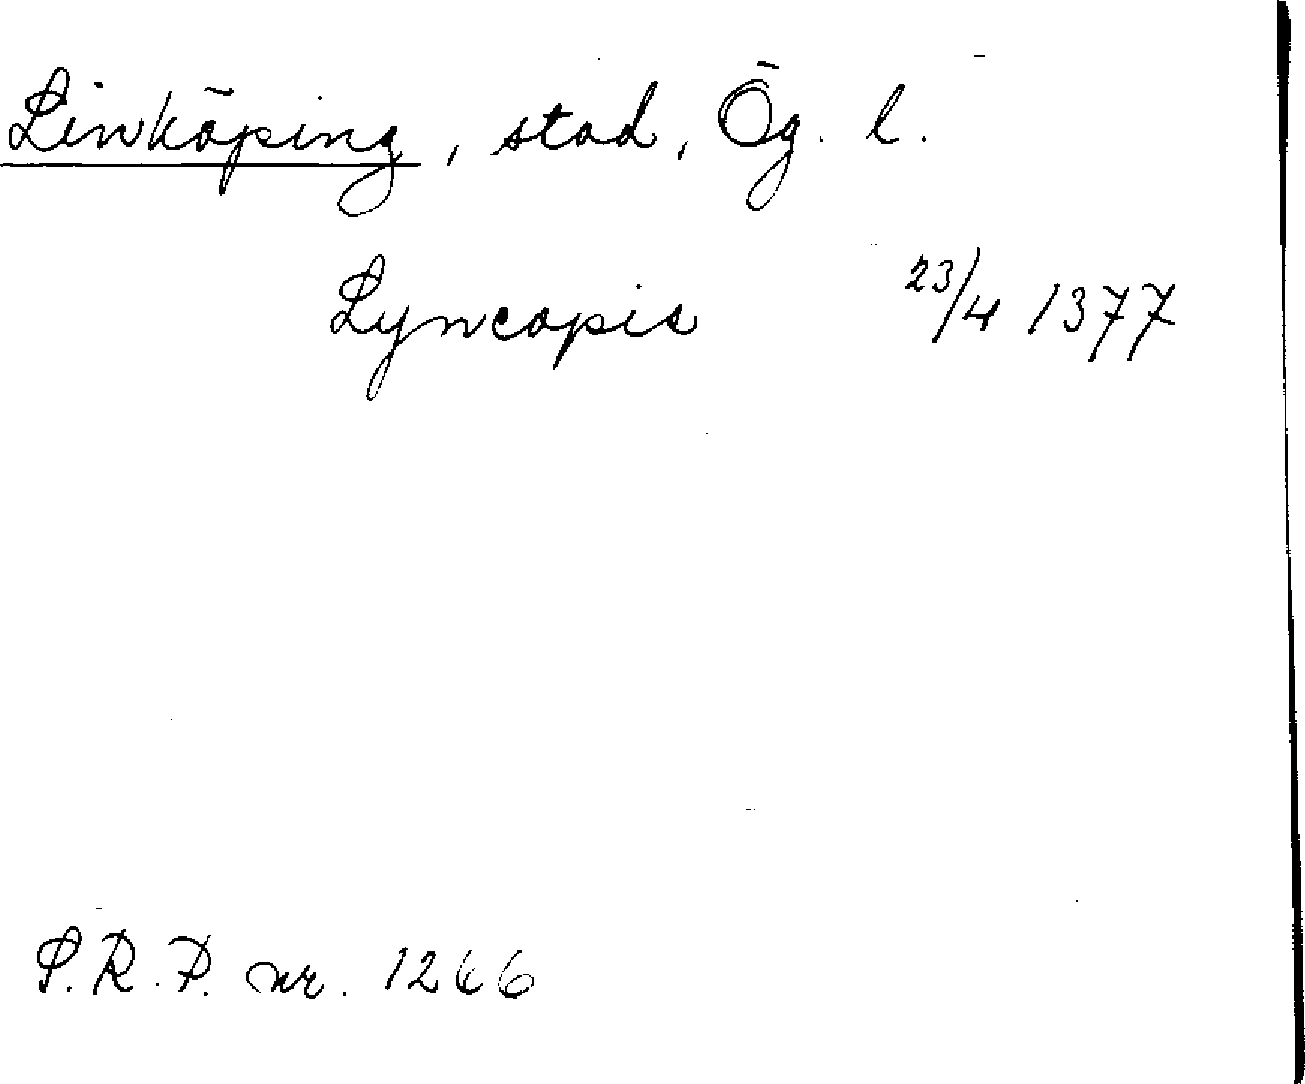 Linköping, stad, Ög. l.
Lyncopis 23/4 1377
S.R.P. nr. 1266